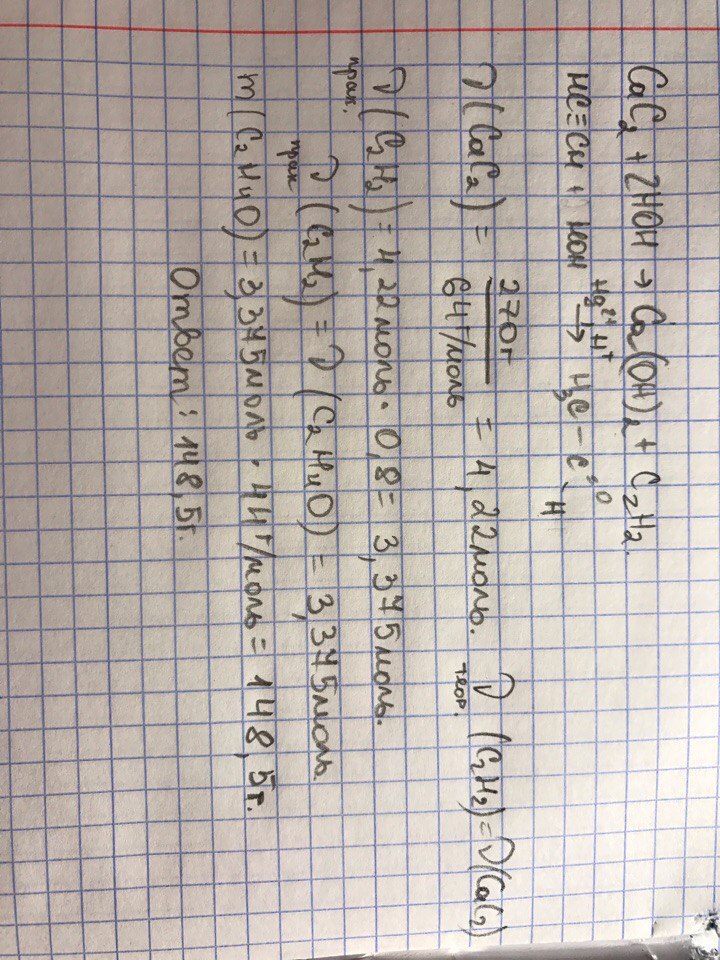 CaC₂ + 2HOH → Ca(OH)₂ + C₂H₂.
HC≡CH + HOH Hg²⁺ H⁺ → H₃C – C =O H
ν(CaC₂) = 270г / 64г/моль = 4,22моль. ν теор. (C₂H₂) = ν(CaC₂)
ν прак. (C₂H₂) = 4,22моль · 0,8 = 3,375моль.
ν прак (C₂H₂) = ν(C₂H₄O) = 3,375моль
m(C₂H₄O) = 3,375моль · 44г/моль = 148,5г.
Ответ: 148,5г.